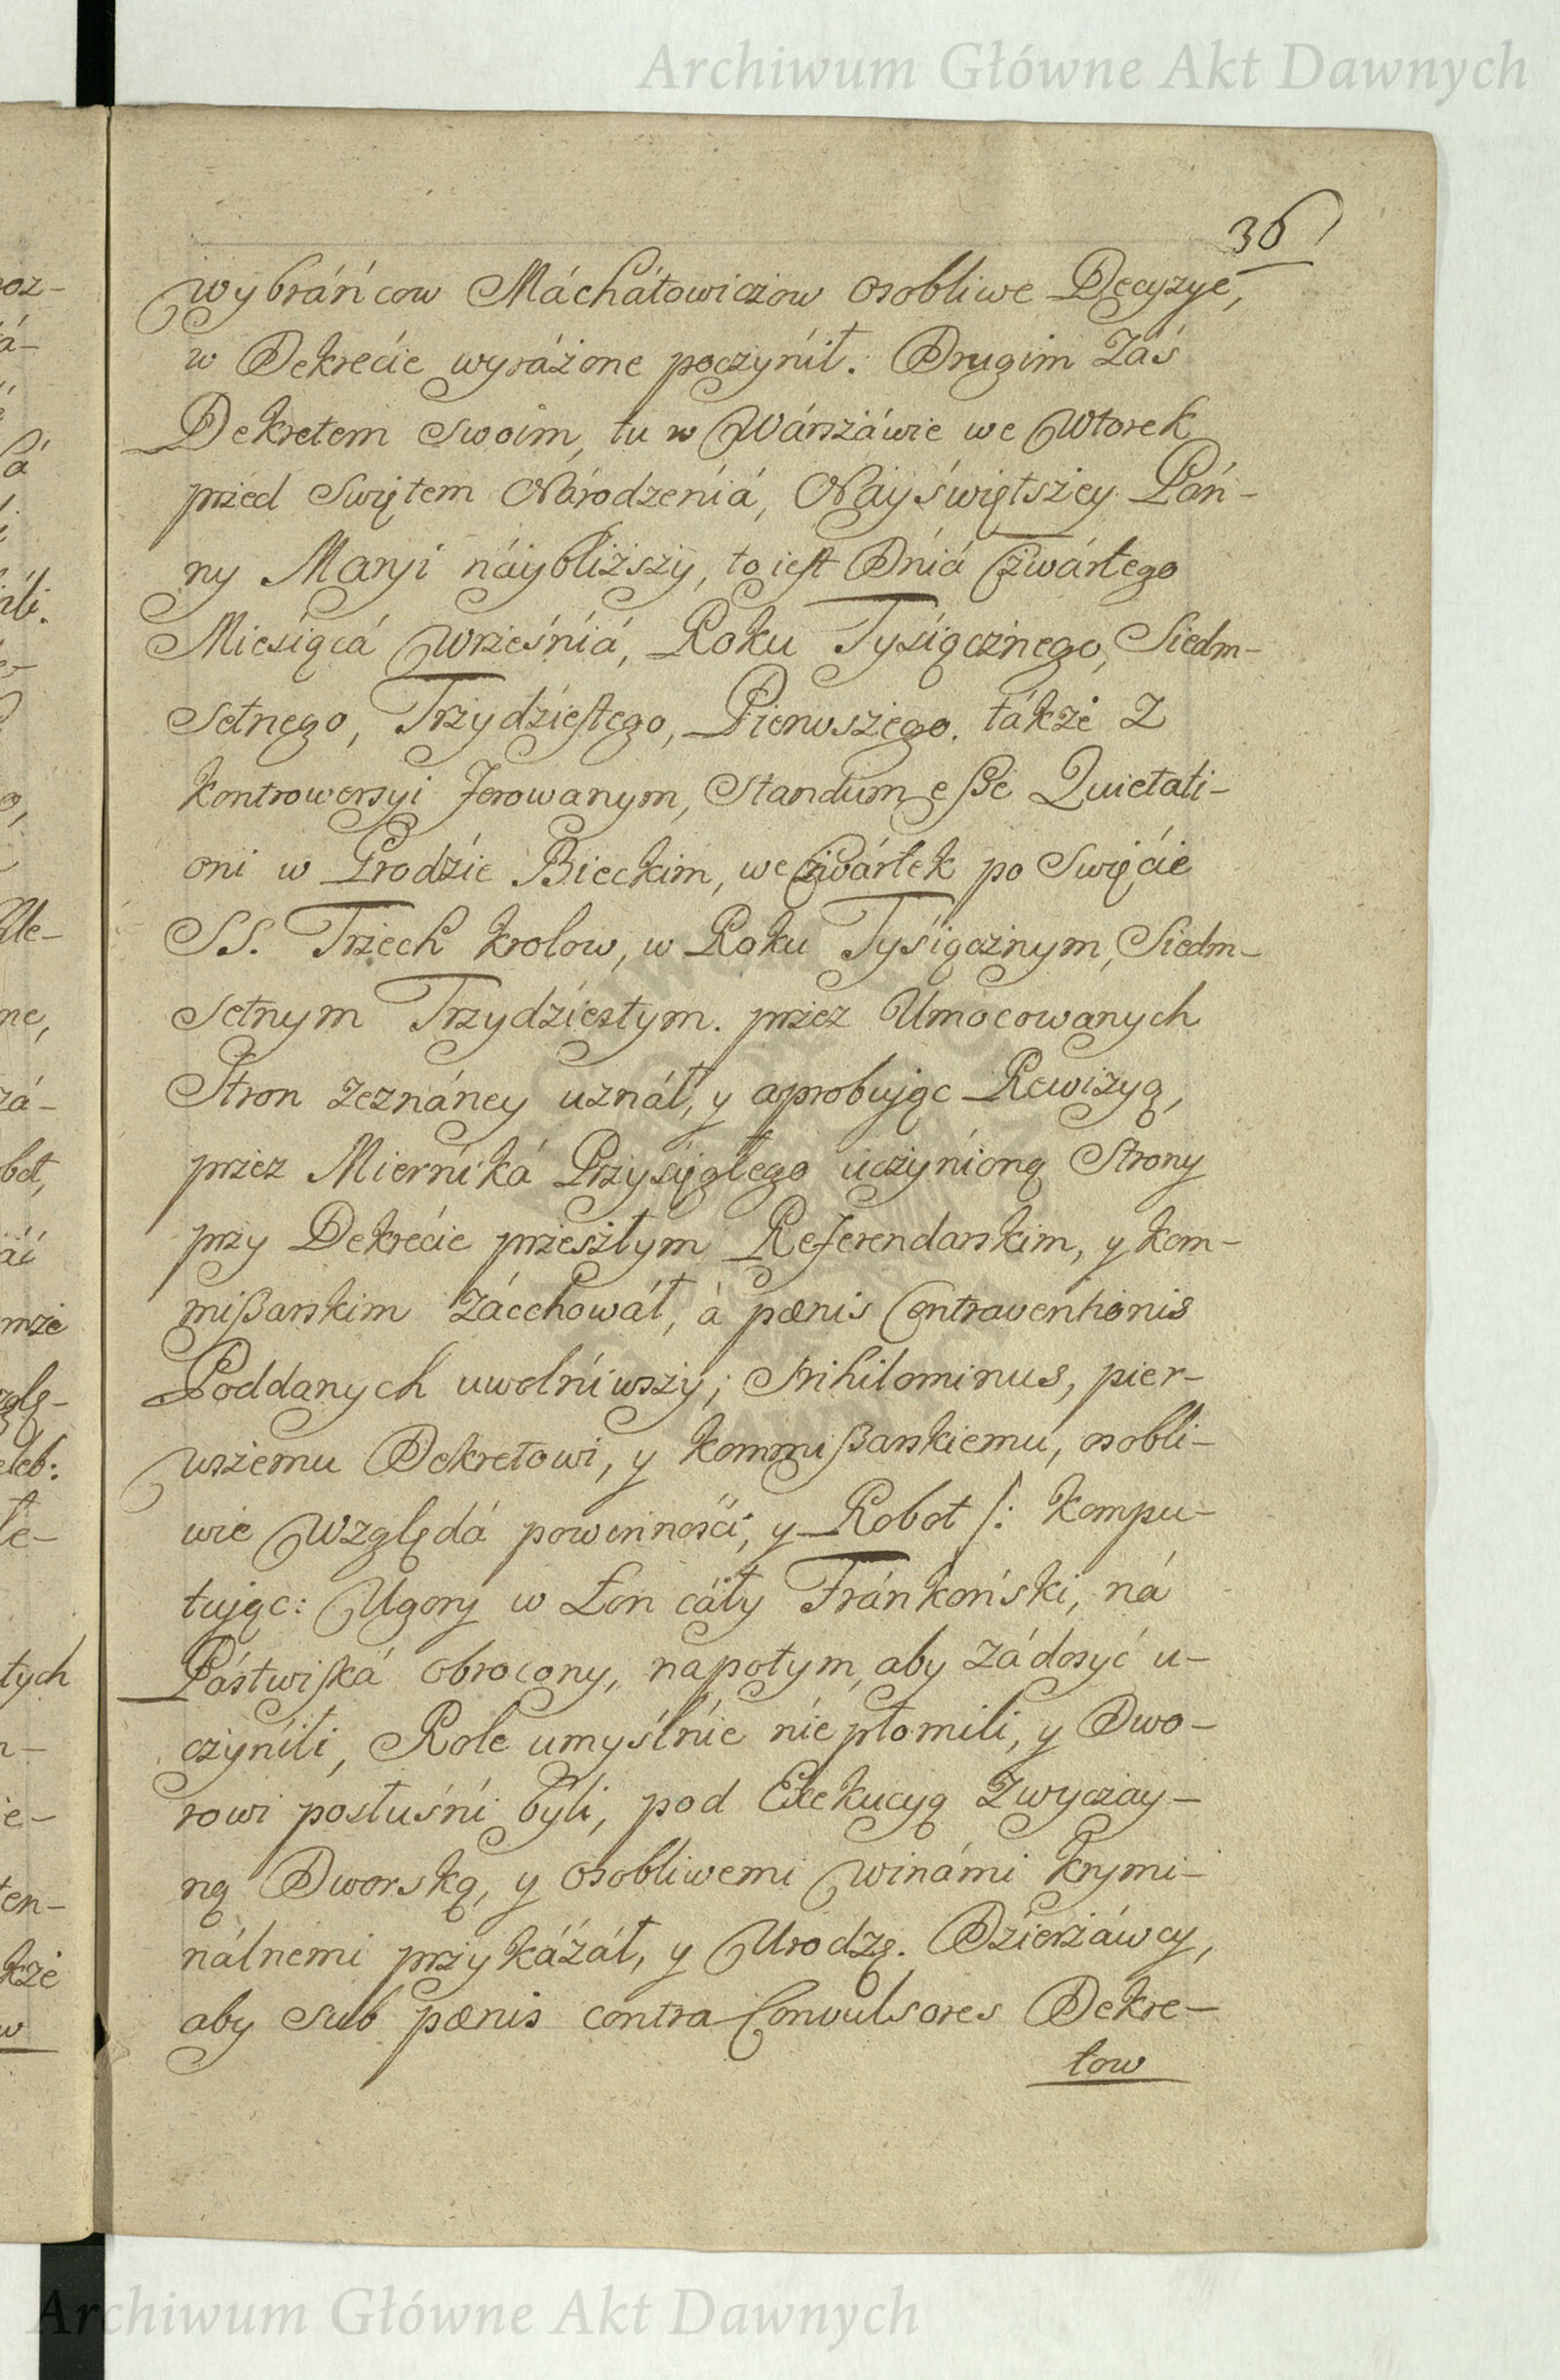 Archiwum Główne Akt Dawnych
36
wybráńcow Máchátowiczow osobliwe Decyzye,
w Dekrećie wyráżone poczynił. Drugim Záś
Dekretem Swoim, tu w Wárszáwie we Wtorek
przed Swiętem Národzenia, Nayświętszey Pán-
ny Maryi náybliższy, to iest Dniá Czwártego
Miesiącá Wrześniá, Roku Tysiącznego, Siedm-
setnego, Trzydziestego, Pierwszego. tákże z
kontrowersyi Ferowanym, Standum eße Quietati-
oni w Grodzie Bieckim, we Czwártek po Swięćie
SS. Trzech krolow, w Roku Tysiącznym, Siedm-
setnym Trzydziestym. przez Umocowanych
Stron zeznáney uznáł, y aprobując Rewizyą,
przez Mierniká Przysięgłego uczynioną Strony
przy Dekrećie przeszłym Referendarskim, y kom-
mißarskim záchowáł, à pænis Contraventionis
Poddanych uwolniwszy; Nihilominus, pier-
wszemu Dekretowi, y kommißarskiemu, osobli-
wie Względá powinnośći, y Robot /: kompu-
tując: Ugory w Łan cáły Fránkoński, ná
Pástwiská obrocony, napotym, aby zádosyć u-
czynili, Role umyślnie nie płomili, y Dwo-
rowi posłuśni byli, pod Exekucyą Zwyczay-
ną Dworską, y osobliwemi winámi krymi-
nálnemi przykázáł, y Urodzę. Dzierżáwcy,
aby sub pænis contra Convulsores Dekre-
tow
Archiwum Główne Akt Dawnych